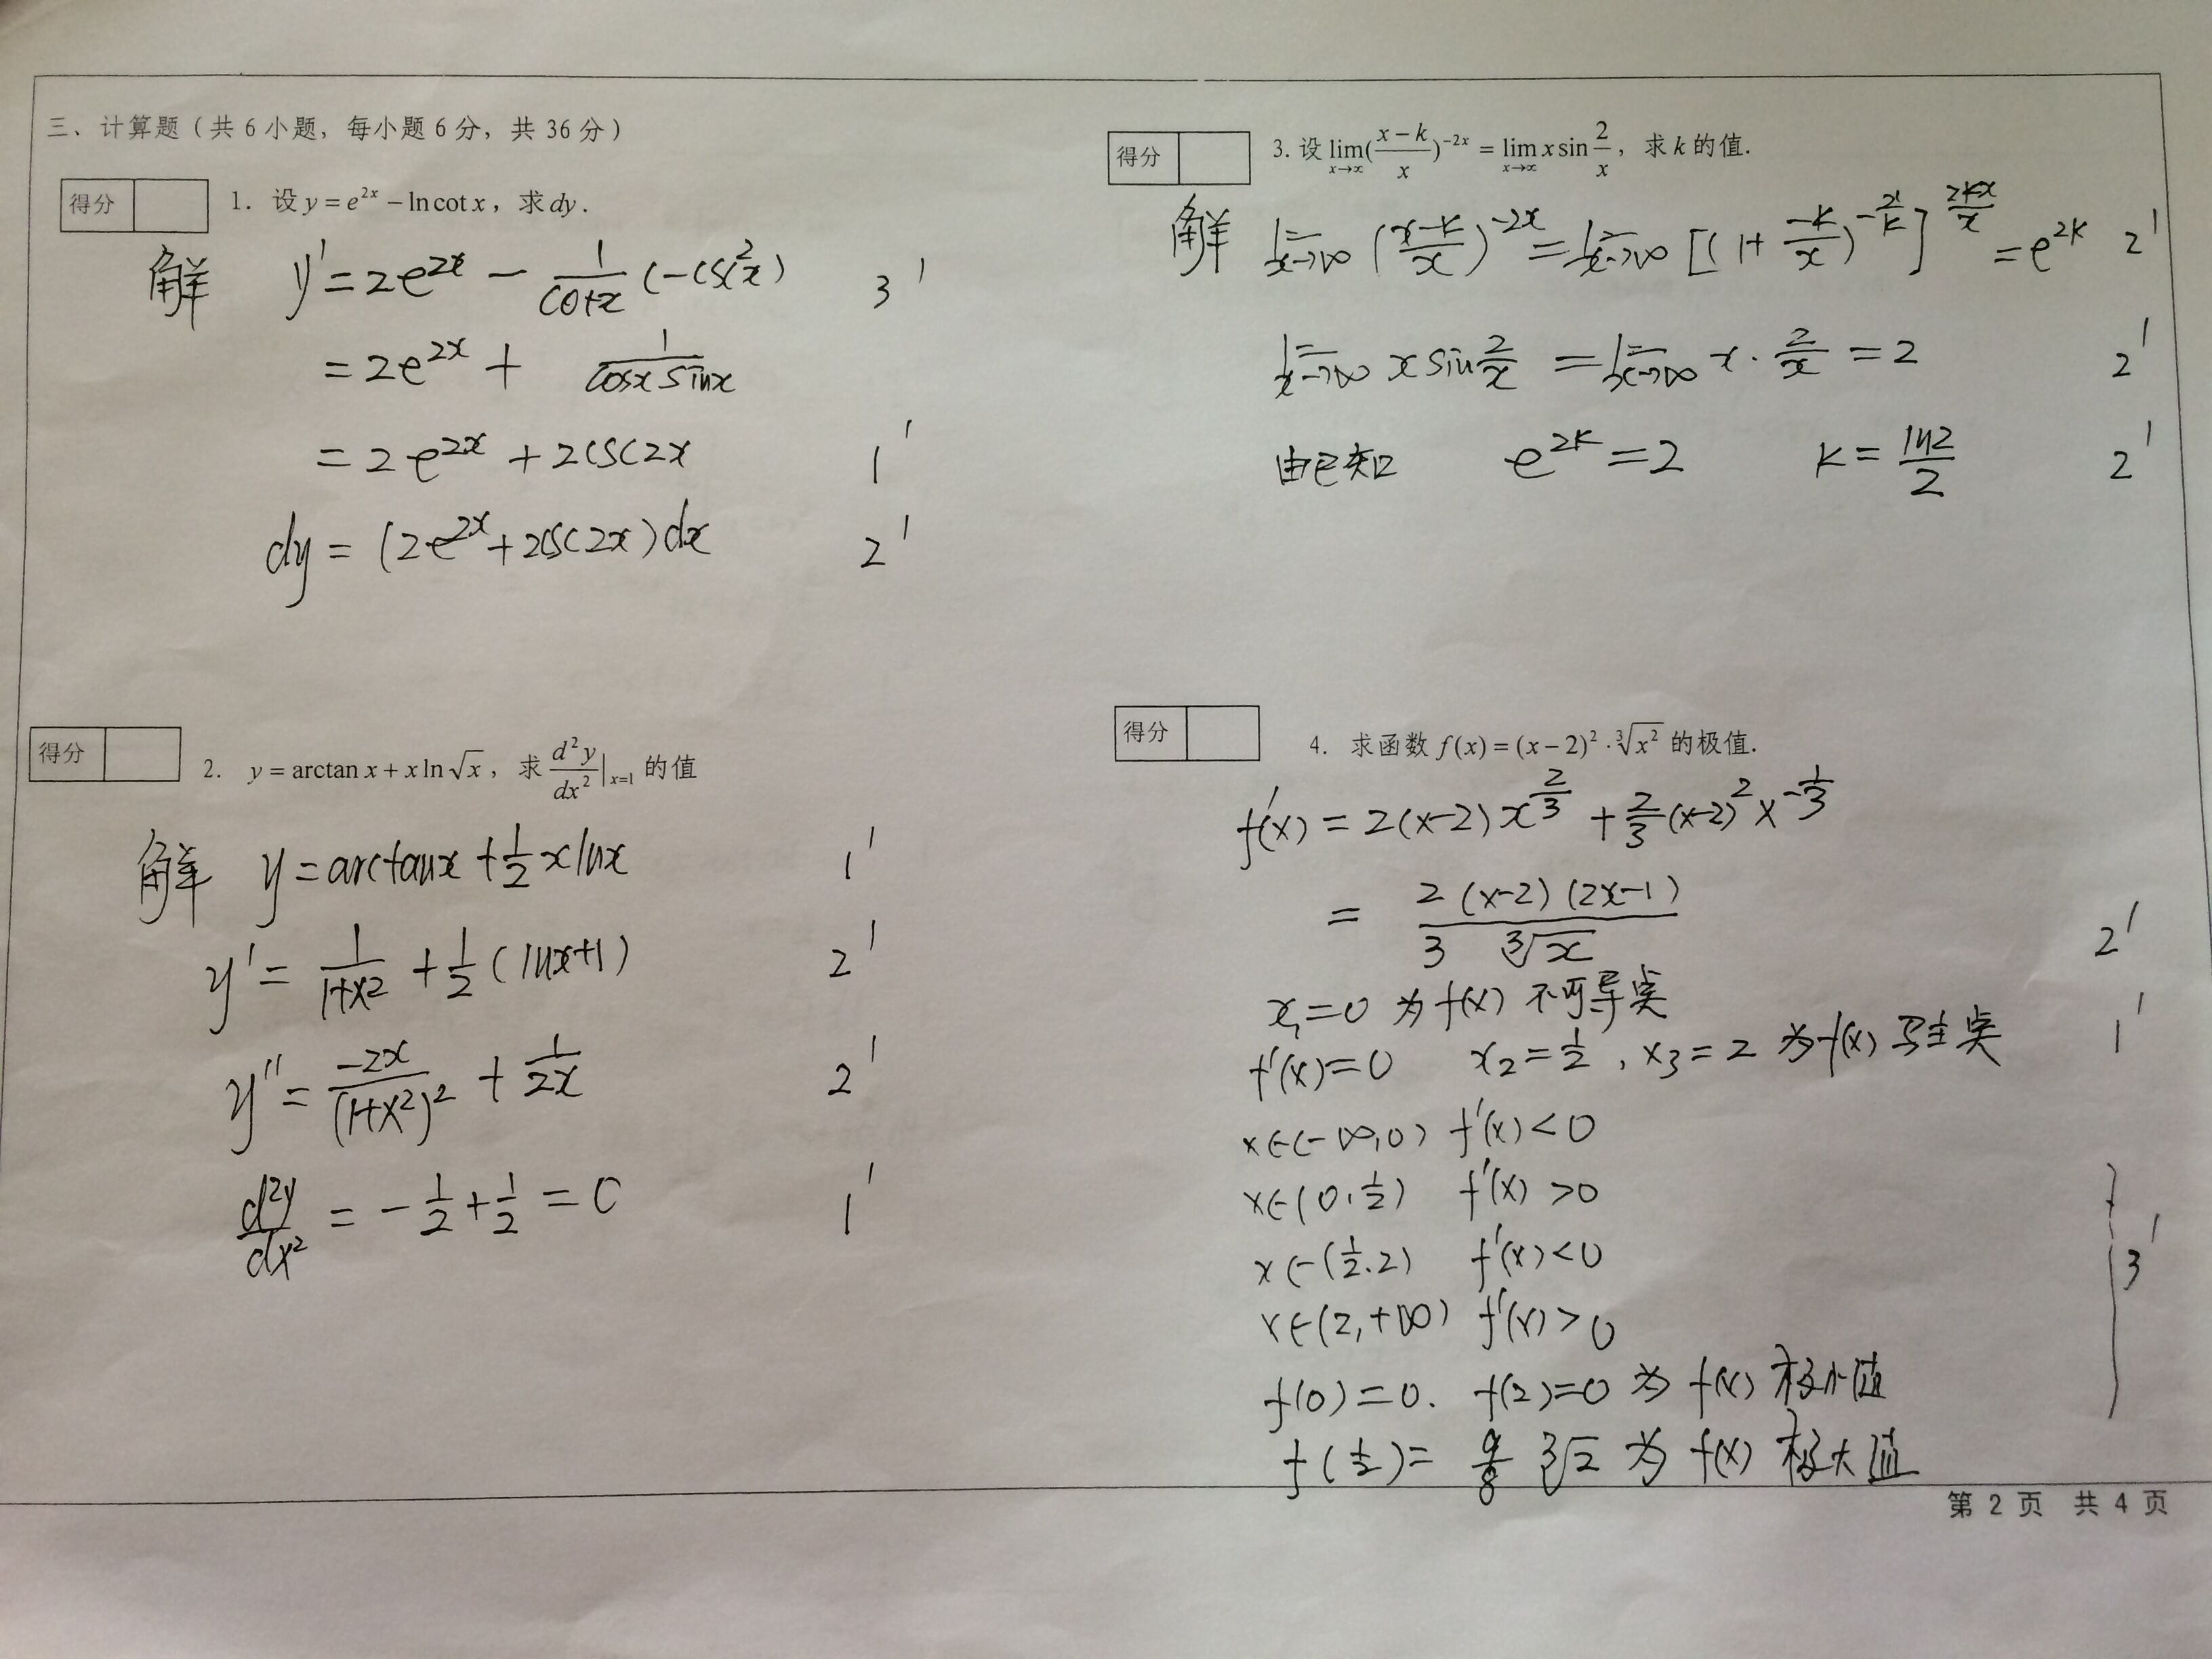 三、计算题（共 6 小题，每小题 6 分，共 36 分）
得分
1. 设 y = e^{2x} − ln cot x，求 dy.
解 y' = 2e^{2x} − \frac{1}{cotx}(−csc²x) 3'
= 2e^{2x} + \frac{1}{cosx sinx}
= 2e^{2x} + 2csc2x 1'
dy = (2e^{2x} + 2csc2x)dx 2'
得分
2. y = arctan x + x ln √x，求 \frac{d²y}{dx²}|_{x=1} 的值
解 y = arctanx + \frac{1}{2}xlnx 1'
y' = \frac{1}{1+x²} + \frac{1}{2}(lnx+1) 2'
y'' = \frac{-2x}{(1+x²)²} + \frac{1}{2x} 2'
\frac{d²y}{dx²} = −\frac{1}{2} + \frac{1}{2} = 0 1'
得分
3. 设 \lim_{x→∞}(\frac{x−k}{x})^{−2x} = \lim_{x→∞} x sin\frac{2}{x}，求 k 的值.
解 \lim_{x→∞}(\frac{x−k}{x})^{−2x} = \lim_{x→∞}[(1+\frac{−k}{x})^{−\frac{x}{k}}]^{\frac{2kx}{x}} = e^{2k} 2'
\lim_{x→∞} x sin\frac{2}{x} = \lim_{x→∞} x·\frac{2}{x} = 2 2'
由已知 e^{2k} = 2 k = \frac{ln2}{2} 2'
得分
4. 求函数 f(x) = (x−2)²·∛x² 的极值.
f'(x) = 2(x−2)x^{\frac{2}{3}} + \frac{2}{3}(x−2)²x^{−\frac{1}{3}}
= \frac{2(x−2)(2x−1)}{3∛x} 2'
x₁=0 为f(x) 不可导点
f'(x)=0 x₂=\frac{1}{2}, x₃=2 为f(x) 驻点 1'
x∈(−∞,0) f'(x)<0
x∈(0,\frac{1}{2}) f'(x)>0
x∈(\frac{1}{2},2) f'(x)<0 3'
x∈(2,+∞) f'(x)>0
f(0)=0. f(2)=0 为 f(x) 极小值
f(\frac{1}{2})= \frac{9}{8}∛2 为 f(x) 极大值
第 2 页 共 4 页